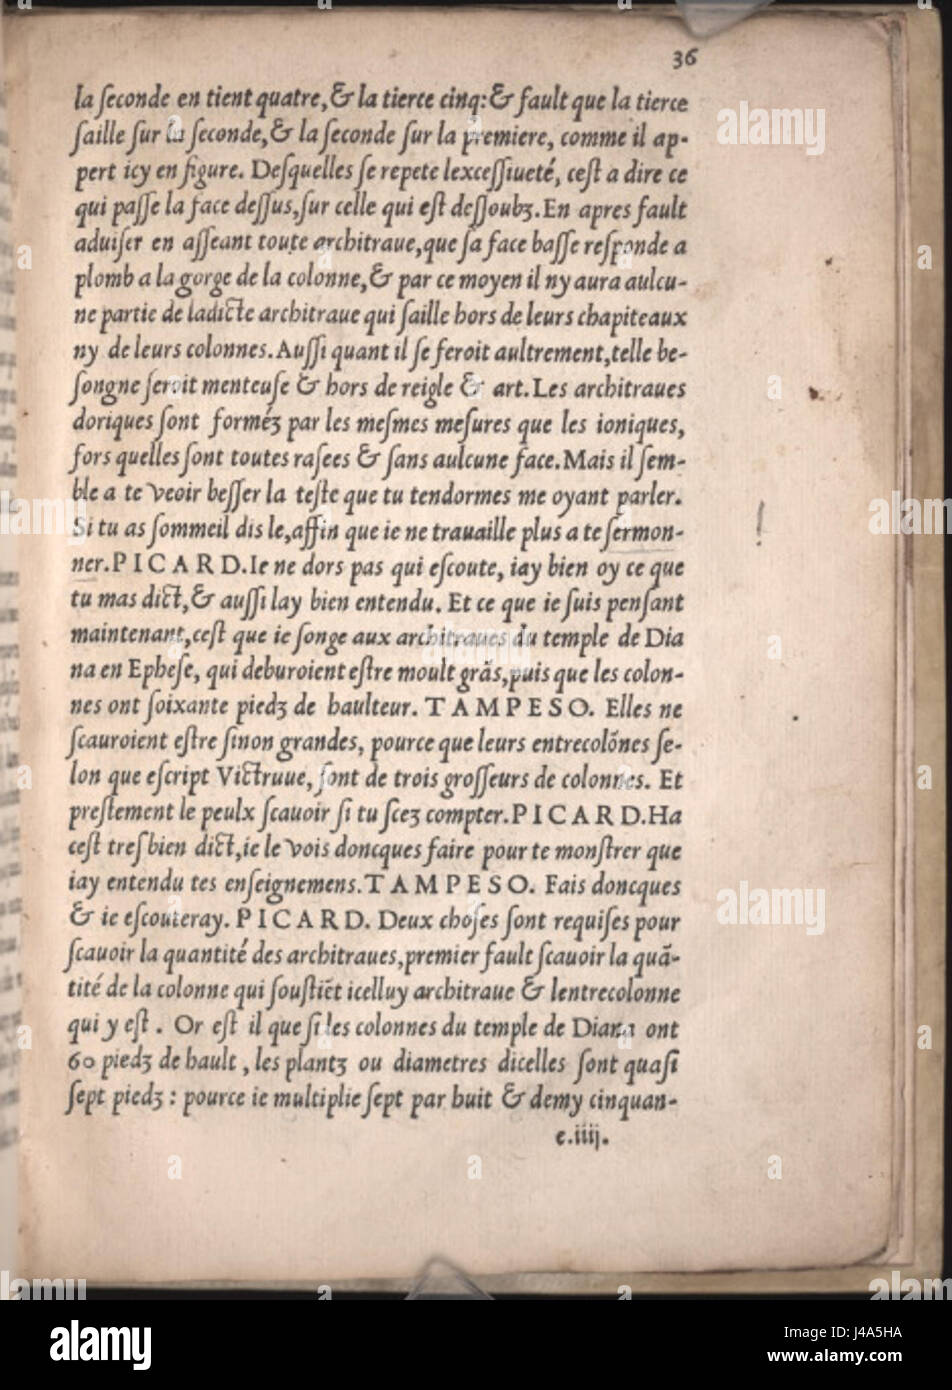 36
la ſeconde en tient quatre,& la tierce cinq:& fault que la tierce
ſaille ſur la ſeconde,& la ſeconde ſur la premiere, comme il ap-
pert icy en figure. Deſquelles ſe repete lexceſſiueté, ceſt a dire ce
qui paſſe la face deſſus,ſur celle qui eſt deſſoubz.En apres fault
aduiſer en aſſeant toute architraue,que ſa face baſſe reſponde a
plomb a la gorge de la colonne,& par ce moyen il ny aura aulcu-
ne partie de ladicte architraue qui ſaille hors de leurs chapiteaux
ny de leurs colonnes.Auſſi quant il ſe feroit aultrement,telle be-
ſongne ſeroit menteuſe & hors de reigle & art.Les architraues
doriques ſont forméz par les meſmes meſures que les ioniques,
fors quelles ſont toutes raſees & ſans aulcune face.Mais il ſem-
ble a te veoir beſſer la teſte que tu tendormes me oyant parler.
Si tu as ſommeil dis le,affin que ie ne trauaille plus a te ſermon-
ner.PICARD.Ie ne dors pas qui eſcoute, iay bien oy ce que
tu mas dict,& auſſi lay bien entendu. Et ce que ie ſuis penſant
maintenant,ceſt que ie ſonge aux architraues du temple de Dia
na en Epheſe, qui deburoient eſtre moult grãs,puis que les colon-
nes ont ſoixante piedz de haulteur. TAMPESO. Elles ne
ſcauroient eſtre ſinon grandes, pource que leurs entrecolõnes ſe-
lon que eſcript Victruue, ſont de trois groſſeurs de colonnes. Et
preſtement le peulx ſcauoir ſi tu ſcez compter.PICARD.Ha
ceſt treſbien dict,ie le vois doncques faire pour te monſtrer que
iay entendu tes enſeignemens.TAMPESO. Fais doncques
& ie eſcouteray.PICARD. Deux choſes ſont requiſes pour
ſcauoir la quantité des architraues,premier fault ſcauoir la quã-
tité de la colonne qui ſouſtiẽt icelluy architraue & lentrecolonne
qui y eſt. Or eſt il que ſi les colonnes du temple de Diana ont
60 piedz de hault, les plantz ou diametres dicelles ſont quaſi
ſept piedz : pource ie multiplie ſept par huit & demy cinquan-
e.iiij.
alamy
alamy
alamy
alamy
alamy
alamy
alamy
Image ID: J4A5HA
www.alamy.com